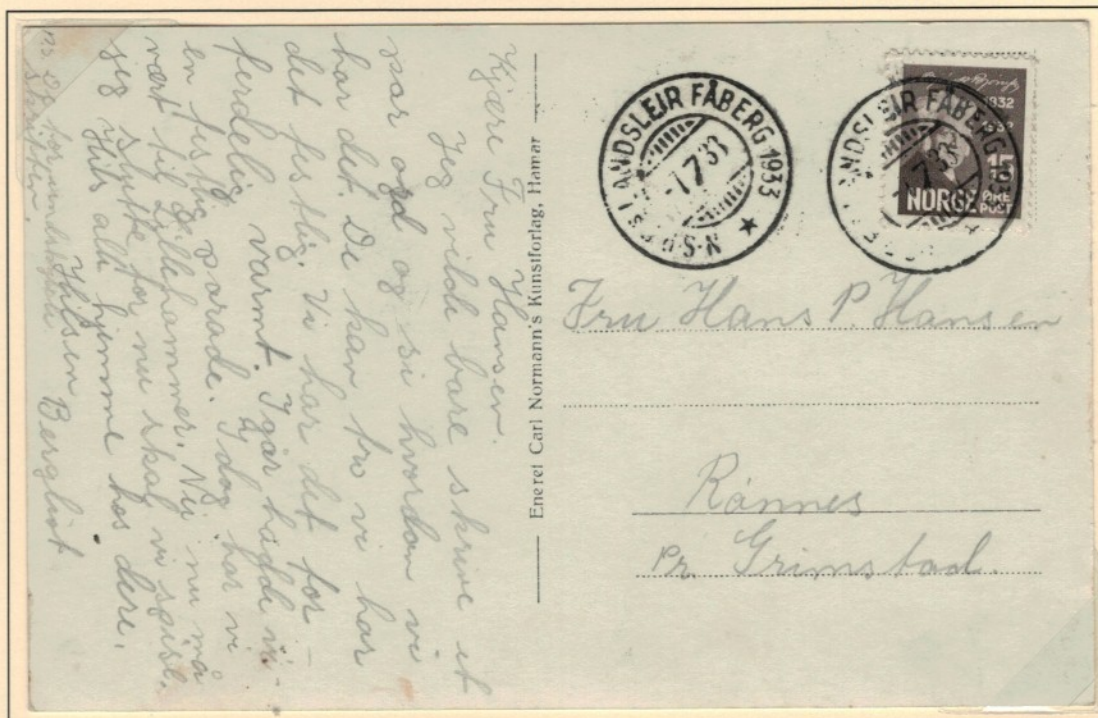 Kjære Fru Hansen.
Jeg vilde bare skrive et
par ord og si hvordan vi
har det. De kan tro vi har
det festlig. Vi har det for-
ferdelig varmt. Igår hadde vi
en festlig parade. Idag har vi
vært til Lillehammer. Nu må
jeg slutte for nu skal vi spise.
Hils alle hjemme hos dere.
Hilsen Bergliot
P.S.
skriften.
Enerei Carl Normann's Kunstforlag, Hamar
N·S·P LANDSLEIR FÅBERG 1933
-1.7.33
LANDSLEIR FÅBERG 1933
7.33
1932
15
NORGE ØRE
POST
Fru Hans P. Hansen
Rønnes
pr. Grimstad.